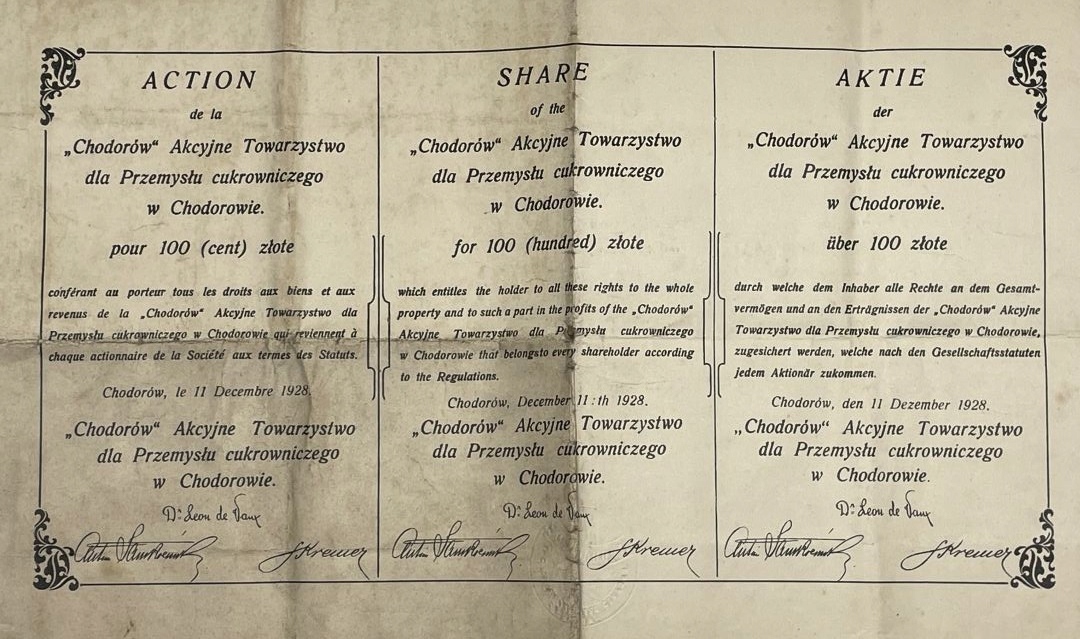 ACTION
de la
„Chodorów“ Akcyjne Towarzystwo
dla Przemysłu cukrowniczego
w Chodorowie.
pour 100 (cent) złote
conférant au porteur tous les droits aux biens et aux
revenus de la „Chodorów“ Akcyjne Towarzystwo dla
Przemysłu cukrowniczego w Chodorowie qui reviennent à
chaque actionnaire de la Société aux termes des Statuts.
Chodorów, le 11 Decembre 1928.
„Chodorów“ Akcyjne Towarzystwo
dla Przemysłu cukrowniczego
w Chodorowie.
Dr Leon de
SHARE
of the
„Chodorów“ Akcyjne Towarzystwo
dla Przemysłu cukrowniczego
w Chodorowie.
for 100 (hundred) złote
which entitles the holder to all these rights to the whole
property and to such a part in the profits of the „Chodorów“
Akcyjne Towarzystwo dla Przemysłu cukrowniczego
w Chodorowie that belongsto every shareholder according
to the Regulations.
Chodorów, December 11:th 1928.
„Chodorów“ Akcyjne Towarzystwo
dla Przemysłu cukrowniczego
w Chodorowie.
Dr Leon de
SKremer
AKTIE
der
„Chodorów“ Akcyjne Towarzystwo
dla Przemysłu cukrowniczego
w Chodorowie.
über 100 złote
durch welche dem Inhaber alle Rechte an dem Gesamt-
vermögen und an den Erträgnissen der „Chodorów“ Akcyjne
Towarzystwo dla Przemysłu cukrowniczego w Chodorowie,
zugesichert werden, welche nach den Gesellschaftsstatuten
jedem Aktionär zukommen.
Chodorów, den 11 Dezember 1928.
„Chodorów“ Akcyjne Towarzystwo
dla Przemysłu cukrowniczego
w Chodorowie.
Dr Leon de
SKremer